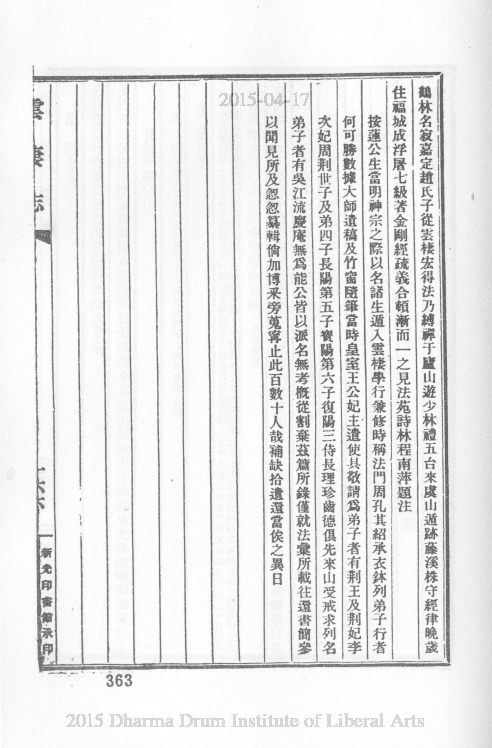 鶴林名寂嘉定趙氏子從雲棲宏得法乃縛禪于廬山遊少林禮五台來虞山遁跡藤溪株守經律晚歲
住福城成浮屠七級著金剛經疏義合頓漸而一之見法苑詩林程南萍題注
按蓮公生當明神宗之際以名諸生遁入雲棲學行兼修時稱法門周孔其紹承衣鉢列弟子行者
何可勝數據大師遺稿及竹窗隨筆當時皇室王公妃主遣使具敬請爲弟子者有荆王及荆妃李
次妃周荆世子及弟四子長陽第五子寶陽第六子復陽三侍長理珍齒德俱先來山受戒求列名
弟子者有吳江流慶庵無爲能公皆以派名無考概從割棄茲篇所錄僅就法彙所載往還書簡參
以聞見所及忽忽纂輯倘加博釆旁蒐寧止此百數十人哉補缺拾遺還當俟之異日
雲棲志
新光印書館承印
363
2015-04-17
2015 Dharma Drum Institute of Liberal Arts